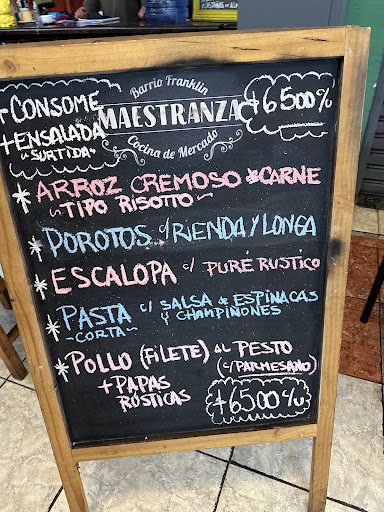 Barrio Franklin
MAESTRANZA
Cocina de Mercado
+CONSOME
+ENSALADA
"SURTIDA"
$6500 %
* ARROZ CREMOSO & CARNE
~TIPO RISOTTO~
* POROTOS c/ RIENDA Y LONGA
* ESCALOPA c/ PURÉ RUSTICO
* PASTA c/ SALSA de ESPINACAS
~CORTA~ y CHAMPIÑONES
* POLLO (FiLETE) AL PESTO
(c/PARMESANO)
+PAPAS
RÓSTICAS
$6500 %